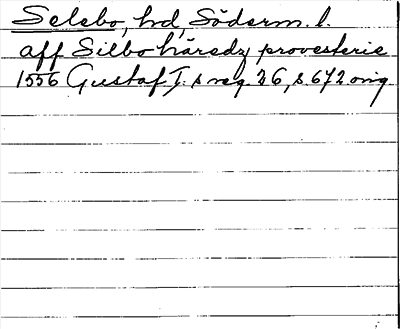 Selebo, hd, Söderm. l.
aff Silbo häredz provesterie
1556 Gustaf I. s reg. 26, s. 672 orig